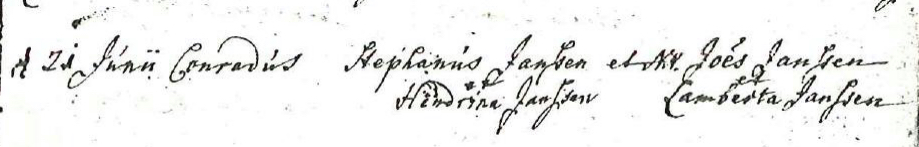 21 Junii Conradus Stephanus Janssen et Joës Janssen
Hindrina Janssen Lamberta Janssen